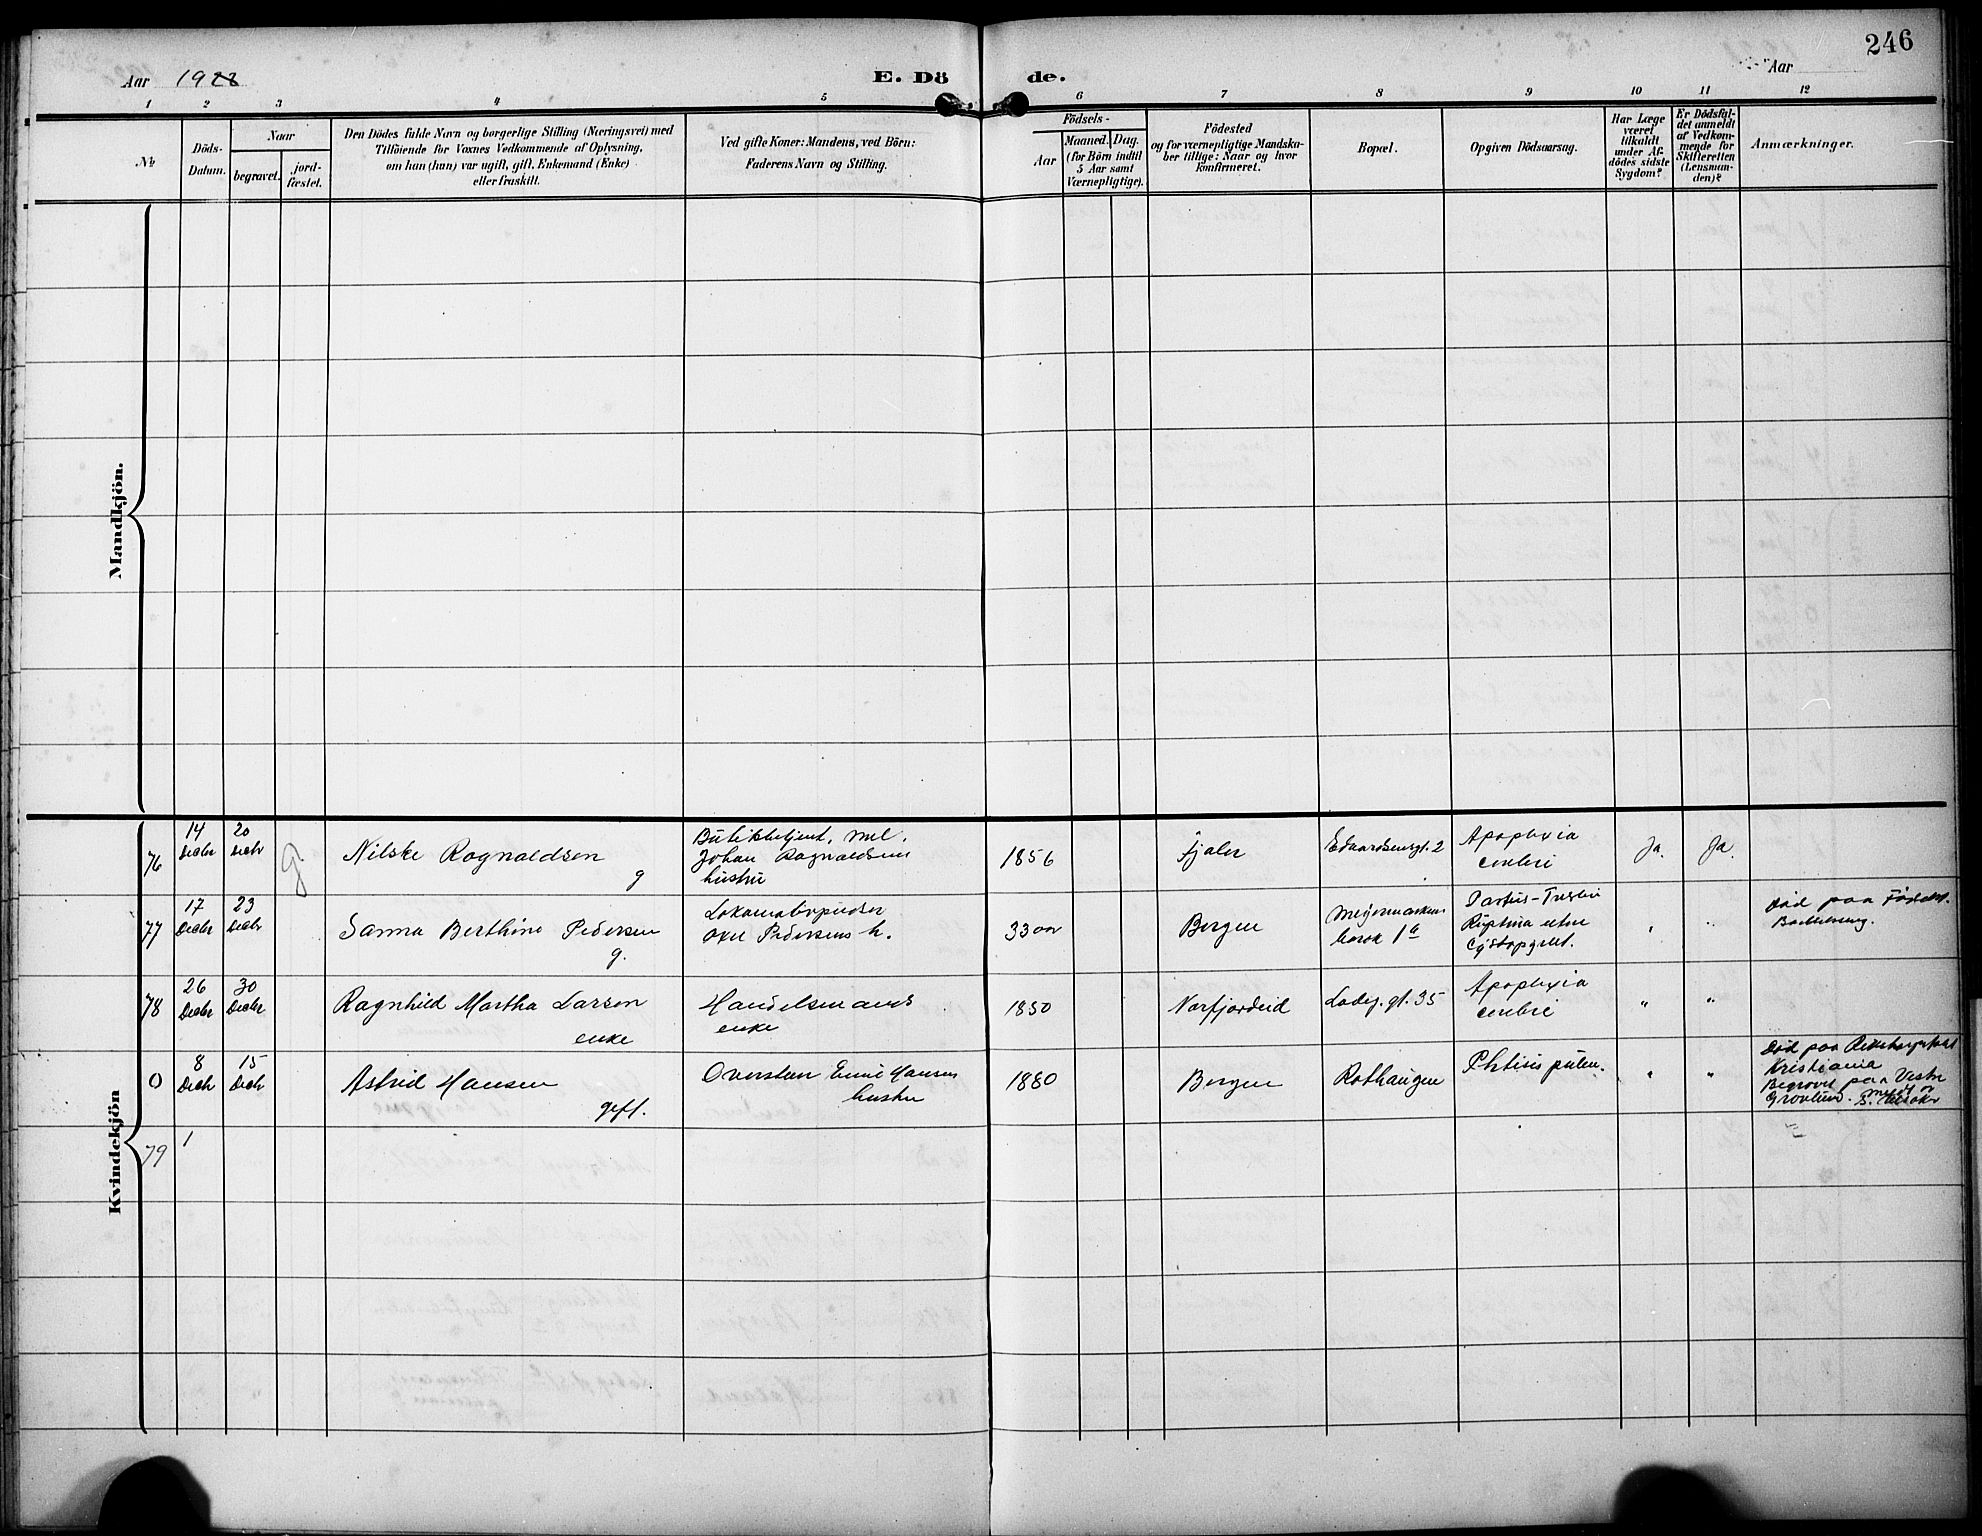 246
Aar 1928
E. Döde.
Aar
1 2 3 4 5 6 7 8 9 10 11 12
№
Döds-
Datum.
Naar
begravet.
jord-
fæstet.
Den Dödes fulde Navn og borgerlige Stilling (Næringsvei) med
Tilföiende for Voxnes Vedkommende af Oplysning,
om han (hun) var ugift, gift, Enkemand (Enke)
eller fraskilt.
Ved gifte Koner: Mandens, ved Börn:
Faderens Navn og Stilling.
Födsels-
Aar
Maaned. Dag.
(for Börn indtil
5 Aar samt
Værnepligtige).
Födested
og for værnepligtige Mandska-
ber tillige: Naar og hvor
konfirmeret.
Bopæl.
Opgiven Dödsaarsag.
Har Læge
været
tilkaldt
under Af-
dödes sidste
Sygdom?
Er Dödsfal-
det anmeldt
af Vedkom-
mende for
Skifteretten
(Lensman-
den)?
Anmærkninger.
Mandkjön.
Kvindekjön
76
14
Decbr
20
Decbr
g
Nilske Ragnaldsen
g
Butikbetjent,
Johan Ragnaldsens
hustru
1856
Fjaler
Edvardsensgt. 2
Apoplexia
cerebri
Ja.
Ja.
77
17
Decbr
23
Decbr
Sanna Berthine Pedersen
g.
Lokomotivpudser
Pedersens h.
33 aar
Bergen
1a
Partus
"
"
Död paa
78
26
Decbr
30
Decbr
Ragnhild Martha Larsen
enke
Handelsmands
enke
1850
Nordfjordeid
Ladeg. gt. 35
Apoplexia
cerebri
"
"
0
8
Decbr
15
Decbr
Astrid Hansen
gift.
Oversteen Hansen
hustru
1880
Bergen
Rothaugen
Phtisis pulm.
"
"
Död paa Rikshospitalet
Kristiania
Begravet paa Vestre
Gravlund.
79
1